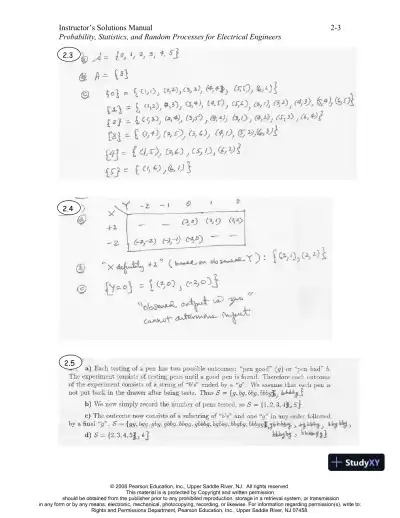 Instructor's Solutions Manual 2-3
Probability, Statistics, and Random Processes for Electrical Engineers
2.3 a) S = {0, 1, 2, 3, 4, 5}
b) A = {3}
c) {0} = {(1,1), (2,2), (3,3), (4,4), (5,5), (6,6)}
{1} =
{2} =
{3} =
{4} =
{5} = {(1,6), (6,1)}
2.4
X Y -2 -1 0 1 2
+2 — — (2,0) (2,1) (2,2)
-2 (-2,-2) (-2,-1) (-2,0) — —
b) "X definitely +2" (based on observed Y): {(2,1), (2,2)}
c) {Y=0} = {(2,0), (-2,0)}
"observed output is zero"
cannot determine input
2.5
a) Each testing of a pen has two possible outcomes: "pen good" (g) or "pen bad" b.
The experiment consists of testing pens until a good pen is found. Therefore each outcome
of the experiment consists of a string of "b's" ended by a "g". We assume that each pen is
not put back in the drawer after being tests. Thus S = {g, bg, bbg, bbbg, bbbbg}
b) We now simply record the number of pens tested, so S = {1, 2, 3, 4, 5}
c) The outcome now consists of a substring of "b's" and one "g" in any order followed
by a final "g".
d) S = {2, 3, 4, 5, 6}
StudyXY
© 2008 Pearson Education, Inc., Upper Saddle River, NJ. All rights reserved.
This material is protected by Copyright and written permission
should be obtained from the publisher prior to any prohibited reproduction, storage in a retrieval system, or transmission
in any form or by any means, electronic, mechanical, photocopying, recording, or likewise. For information regarding permission(s), write to:
Rights and Permissions Department, Pearson Education, Inc., Upper Saddle River, NJ 07458.